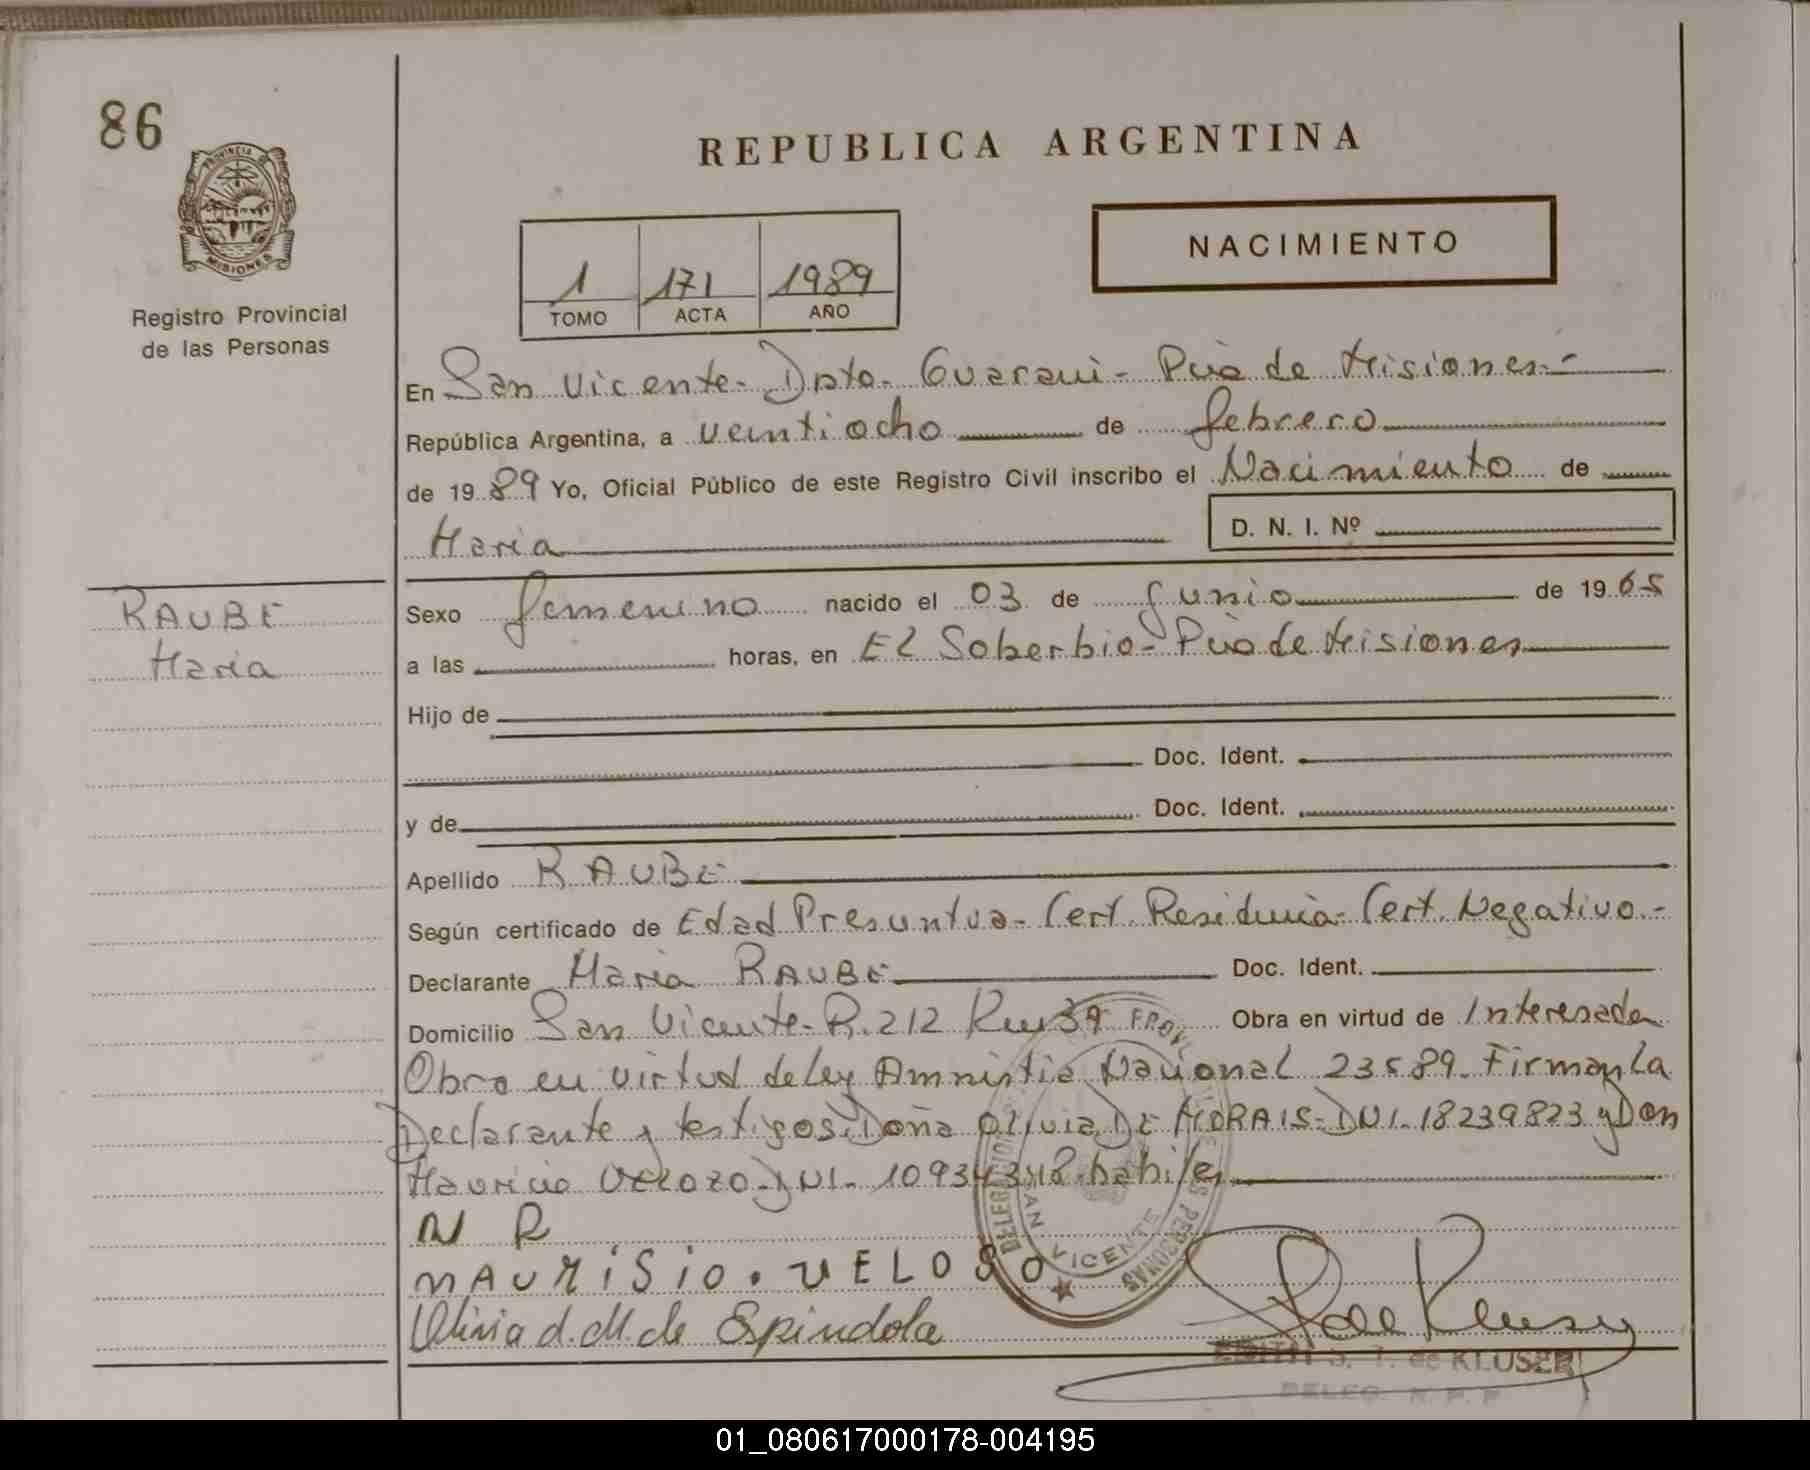 86
PROVINCIA DE
MISIONES
Registro Provincial
de las Personas
REPUBLICA ARGENTINA
NACIMIENTO
1 171 1989
TOMO ACTA AÑO
En San Vicente - Dpto. Guarani - Pcia de Misiones -
República Argentina, a veintiocho de febrero
de 1989 Yo, Oficial Público de este Registro Civil inscribo el Nacimiento de
Maria D. N. I. Nº
RAUBE
Maria
Sexo femenino nacido el 03 de junio de 1965
a las horas, en El Soberbio - Pcia de Misiones
Hijo de
Doc. Ident.
y de Doc. Ident.
Apellido RAUBE
Según certificado de Edad Presuntva - Cert. Residencia - Cert. Negativo. -
Declarante Maria RAUBE Doc. Ident.
Domicilio San Vicente - R. 212 Km 39 Obra en virtud de Interesada
Obra en virtud de Ley Amnistia Nacional 23589. Firman La
Declarante y testigos: Doña Olivia DE MORAIS - DNI. 18239823 y Don
Mauricio VELOZO - DNI - 10934348 habiles
N R
MAURiSiO. VELOSO
Olivia d. M. de Espindola
DELEGACION
SAN VICENTE
PERSONAS
EDITH S. T. de KLUSER
DELEG. R. P. P.
01_080617000178-004195